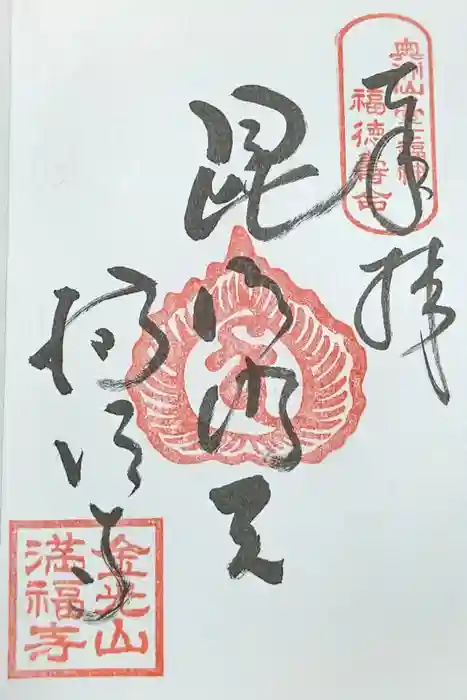 奥州仙臺七福神
福徳壽命
奉拝
毘沙門天
満福寺
金光山
満福寺